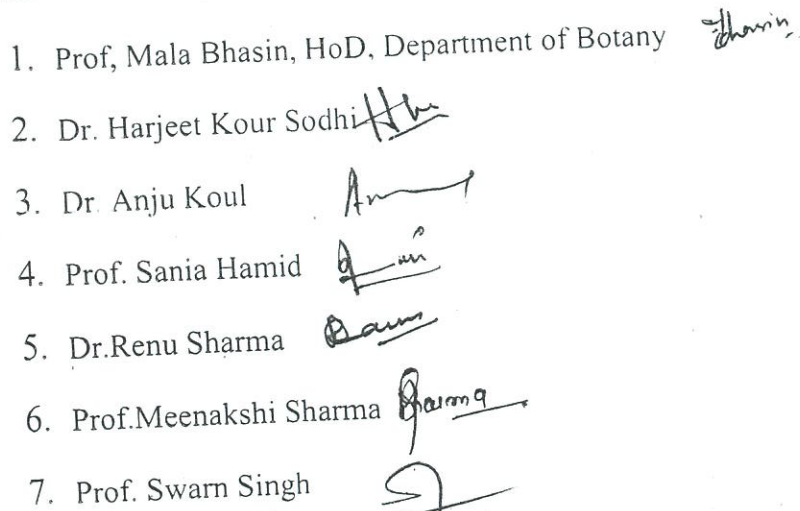 1. Prof, Mala Bhasin, HoD, Department of Botany Bhasin
2. Dr. Harjeet Kour Sodhi
3. Dr. Anju Koul
4. Prof. Sania Hamid
5. Dr.Renu Sharma
6. Prof.Meenakshi Sharma Sharma
7. Prof. Swarn Singh